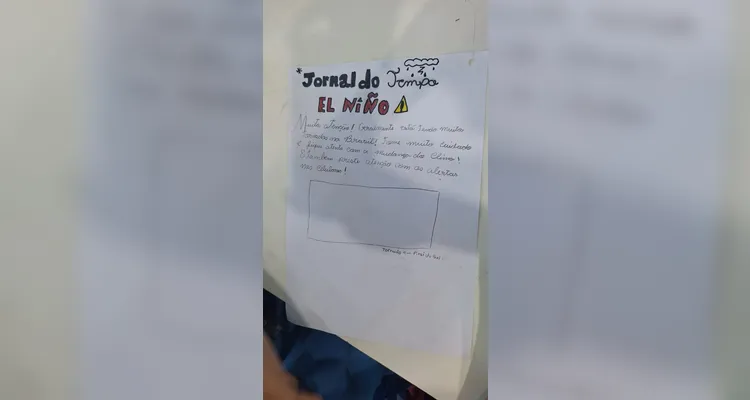 * Jornal do Tempo
EL NIÑO
Muita atenção! Geralmente está tendo muito
tornados no Brasil! Tome muito cuidado
e fique atento com a mudança do Clima!
E também preste atenção com os alertas
nos celulares!
tornado Rio